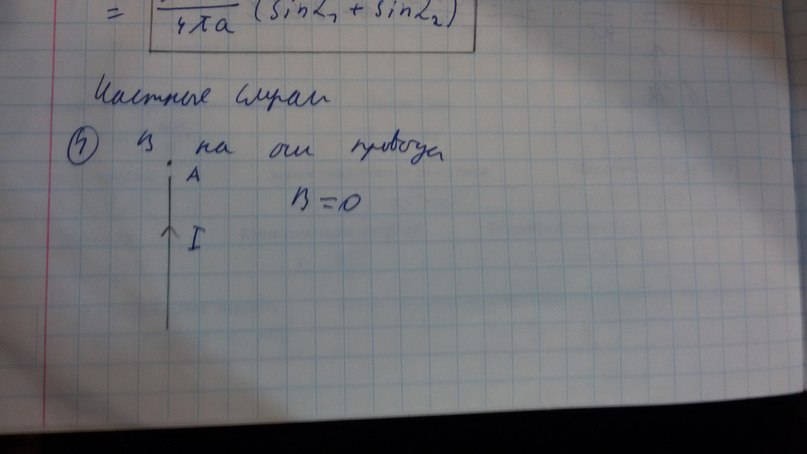 = / 4πa (sinα₁ + sinα₂)
Частные случаи
① B на оси провода
A
B = 0
I